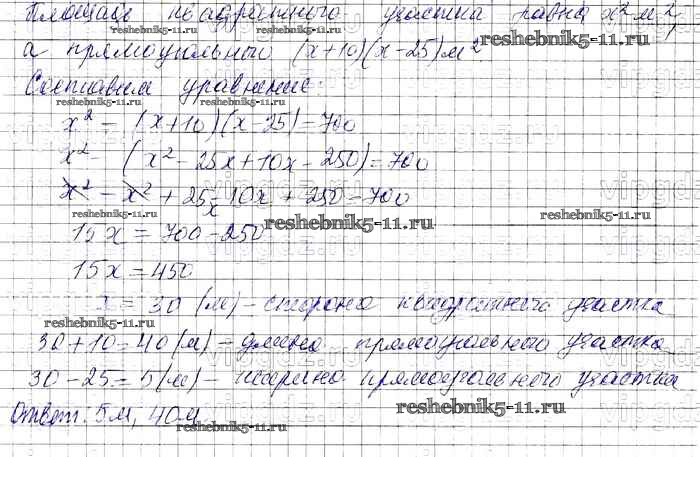 Площадь квадратного участка равна x² м²,
а прямоугольного (x+10)(x-25) м²
Составим уравнение:
reshebnik5-11.ru reshebnik5-11.ru
x² - (x+10)(x-25)=700
x² - (x² - 25x + 10x - 250)=700
x² - x² + 25x - 10x + 250 = 700
reshebnik5-11.ru reshebnik5-11.ru
15x = 700 - 250
15x = 450
x = 30 (м) - сторона квадратного участка
reshebnik5-11.ru
30+10=40 (м) - длина прямоугольного участка
30-25=5 (м) - ширина прямоугольного участка
reshebnik5-11.ru
Ответ: 5м, 40м
reshebnik5-11.ru